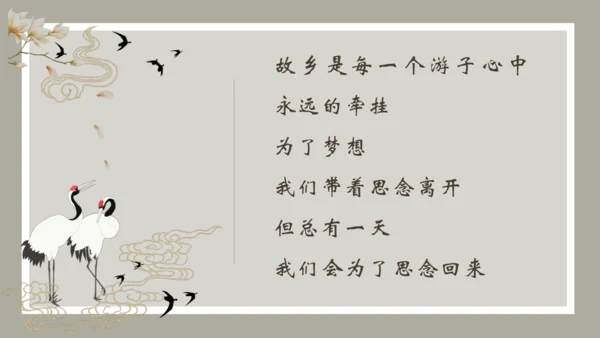 故乡是每一个游子心中
永远的牵挂
为了梦想
我们带着思念离开
但总有一天
我们会为了思念回来